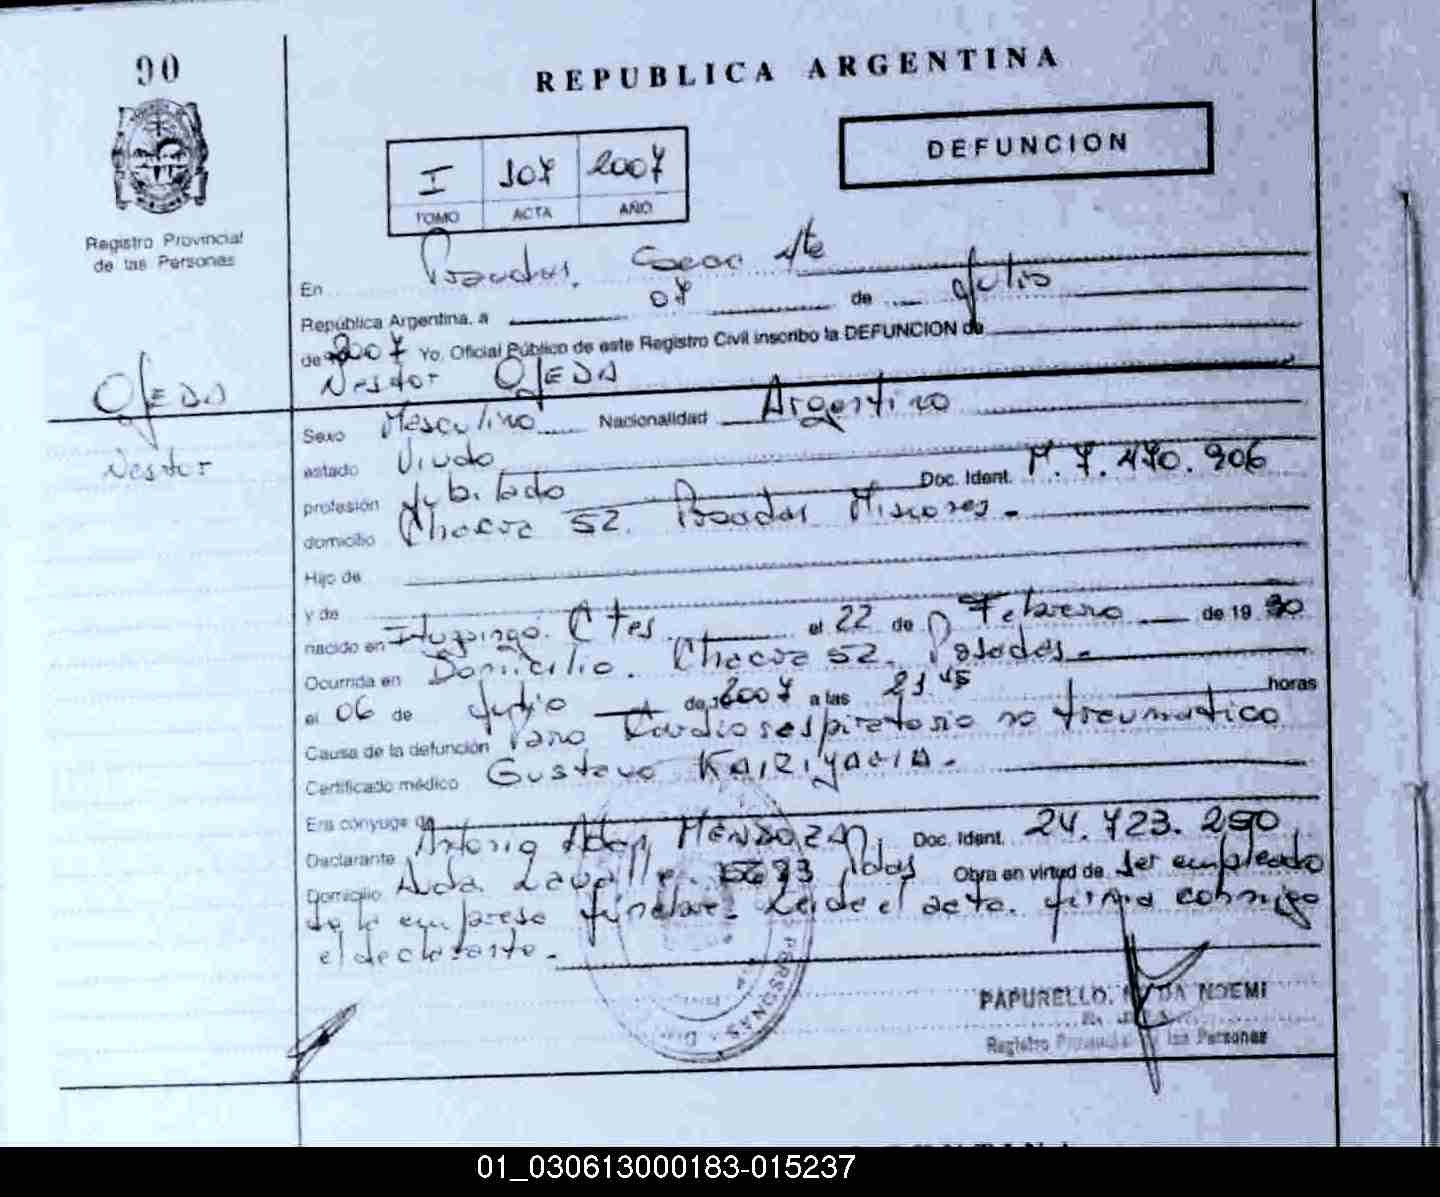 90
REPUBLICA ARGENTINA
DEFUNCION
I 107 2007
TOMO ACTA AÑO
Registro Provincial
de las Personas
En Posadas.
República Argentina, a 07 de Julio
de 2007 Yo, Oficial Público de este Registro Civil inscribo la DEFUNCION de
Nestor OJEDA
OJEDA
Nestor
Sexo Masculino Nacionalidad Argentino
estado Viudo
profesión Jubilado Doc. Ident. M. 7.470.906
domicilio Chacra 52. Posadas Misiones.-
Hijo de
y de
nacido en Ctes. el 22 de Febrero de 19 30
Ocurrida en Domicilio. Chacra 52. Posadas.-
el 06 de Julio de 2007 a las 21 45 horas
Causa de la defunción Paro Cardiorespiratorio no traumatico
Certificado médico Gustavo
Era cónyuge de
Declarante Antonio MENDOZA Doc. Ident. 24.723.290
Domicilio Avda. Lavalle Pdas Obra en virtud de ser empleado
de la empresa funebre. Leida el acta. firma conmigo
el declarante.-
PERSONAS
PAPURELLO, NOEMI
Registro Provincial las Personas
01_030613000183-015237